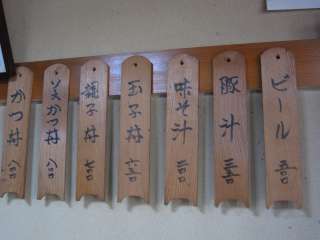 ビール 五〇〇
豚汁 三五〇
味そ汁 二〇〇
玉子丼 六五〇
親子丼 七〇〇
美かつ丼 八〇〇
かつ丼 八〇〇